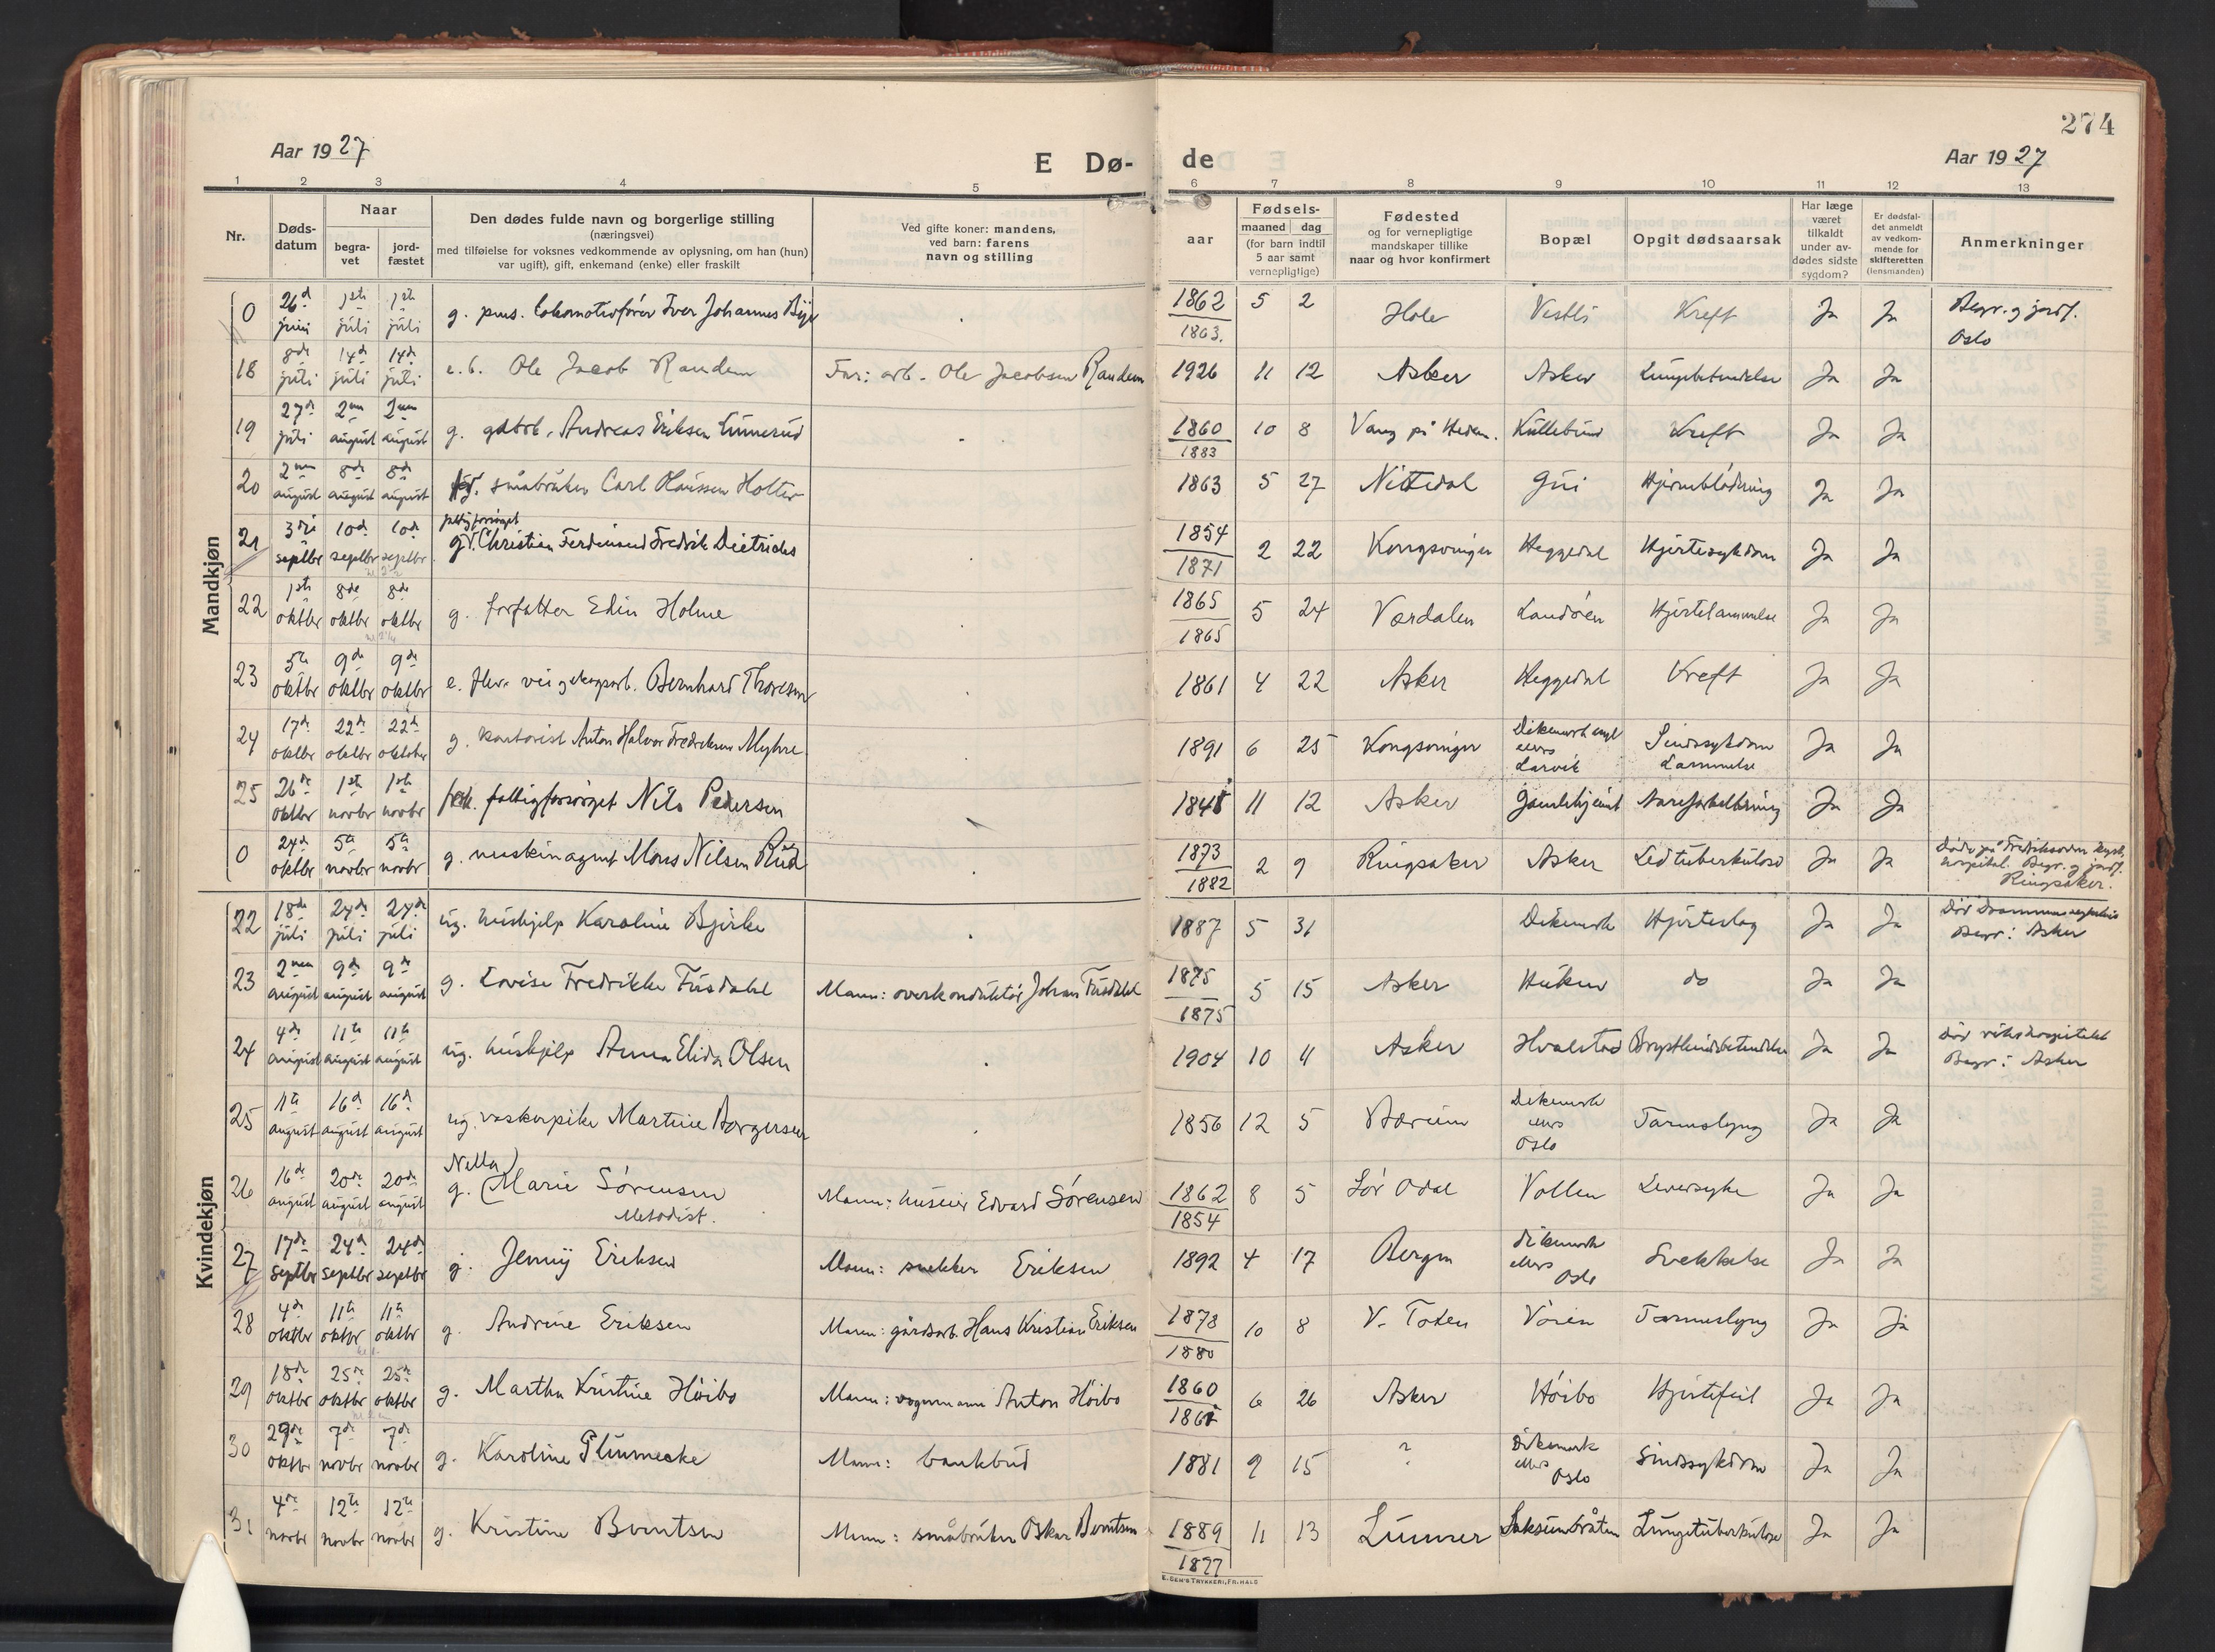 274
Aar 1927
E Dø-
de
Aar 1927
1 2 3 4 5 6 7 8 9 10 11 12 13
Nr.
Døds-
datum
Naar
begra-
vet
jord-
fæstet
Den dødes fulde navn og borgerlige stilling
(næringsvei)
med tilføielse for voksnes vedkommende av oplysning, om han (hun)
var ugift), gift, enkemand (enke) eller fraskilt
Ved gifte koner: mandens,
ved barn: farens
navn og stilling
aar
Fødsels-
maaned dag
(for barn indtil
5 aar samt
vernepligtige)
Fødested
og for vernepligtige
mandskaper tillike
naar og hvor konfirmert
Bopæl
Opgit dødsaarsak
Har læge
været
tilkaldt
under av-
dødes sidste
sygdom?
Er dødsfal-
det anmeldt
av vedkom-
mende for
skifteretten
(lensmanden)
Anmerkninger
Mandkjøn
0 26d juni 1ste juli 1ste juli g. pens. lokomotivfører Iver Johannes Bye 1862 1863. 5 2 Hole Vestli Kreft Ja Ja Begr. og jordf. Oslo
18 8de juli 14de juli 14de juli e.b. Ole Jacob Randem Far: arb. Ole Jacobsen Randem 1926 11 12 Asker Asker Lungebetendelse Ja Ja
19 27de juli 2nen august 2nen august g. gdbrk. Andreas Eriksen Linnerud 1860 1883 10 8 Vang på Hedem. Kullebund Kreft Ja Ja
20 2nen august 8de august 8de august g. småbruker Carl Olaussen Holter 1863 5 27 Nittedal Gui Hjerneblødning Ja Ja
21 3die septbr 10de septbr 10de septbr fattigforsørget g. Christian Ferdinand Fredrik Dietrichs 1854 1871 2 22 Kongsvinger Heggedal Hjertesykdom Ja Ja
22 1ste oktbr 8de oktbr 8de oktbr g. forfatter Edin Holme 1865 1865 5 24 Værdalen Landøen Hjertelammelse Ja Ja
23 5te oktbr 9de oktbr 9de oktbr e. fhv. vei og skogsarb. Bernhard Thoresen 1861 4 22 Asker Heggedal Kreft Ja Ja
24 17de oktbr 22de oktbr 22de oktober g. kontorist Anton Halvor Fredriksen Myhre 1891 6 25 Kongsvinger Dikemark asyl ellers Larvik Sindssykdom Lammelse Ja Ja
25 26de oktbr 1ste novbr 1ste novbr fattigforsørget Nils Pedersen 11 12 Asker Gamlehjemt Aareforkalkning Ja Ja
0 24de oktbr 5te novbr 5te novbr g. maskinagent Mons Nilsen Rud 1873 1882 2 9 Ringsaker Asker Ledtuberkulose Ja Ja Døde på Fredriksværn kyst. hospital. Begr. og jordf. Ringsaker.
Kvindekjøn
22 18de juli 24de juli 24de juli ug. hushjelp Karoline Bjerke 1887 5 31 Dikemark Hjerteslag Ja Ja Død Drammens sykehus Begr: Asker
23 2nen august 9de august 9de august g. Lovise Fredrikke Fusdahl Mann: overkonduktør Johan Fusdahl 1875 1875 5 15 Asker Huken do Ja Ja
24 4de august 11te august 11te august ug. hushjelp Anna Elida Olsen 1904 10 11 Asker Hvalstad Brysthindebetendelse Ja Ja Død rikshospitalet Begr: Asker
25 11te august 16de august 16de august ug. vaskerpike Martine Borgersen 1856 12 5 Bærum Dikemark ellers Oslo Tarmslyng Ja Ja
26 16de august 20de august 20de august Nella) g. (Marie Sørensen Metodist. Mann: huseier Edvard Sørensen 1862 1854 8 5 Sør Odal Vollen Leversyke Ja Ja
27 17de septbr 24de septbr 24de septbr g. Jenny Eriksen Mann: snekker Eriksen 1892 4 17 Bergen Dikemark ellers Oslo Svekkelse Ja Ja
28 4de oktbr 11te oktbr 11te oktbr g. Andrine Eriksen Mann: gårdsarb. Hans Kristian Eriksen 1878 1880 10 8 V. Toten Vøien Tarmslyng Ja Ja
29 18de oktbr 25de oktbr 25de oktbr g. Martha Kristine Høibo Mann: vognmann Anton Høibo 1860 6 26 Asker Høibo Hjertefeil Ja Ja
30 29de oktbr 7de novbr 7de novbr g. Karoline Plünnecke Mann: bankbud 1881 9 15 ? Dikemark ellers Oslo Sindssykdom Ja Ja
31 4de novbr 12te novbr 12te novbr g. Kristine Berntsen Mann: småbruker Oskar Berntsen 1889 1877 11 13 Lunner Laksumbråten Lungetuberkulose Ja Ja
E. SEM'S TRYKKERI, FR.HALD